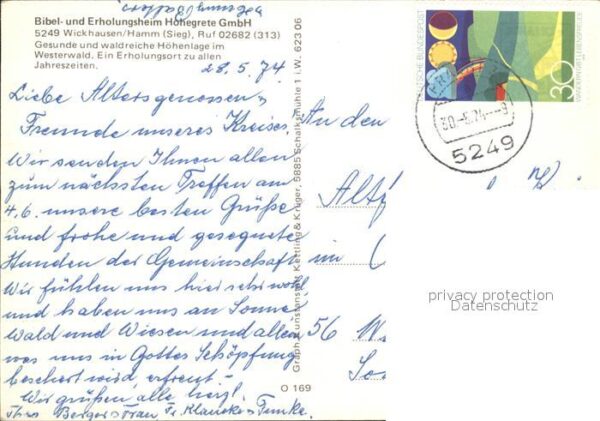 Bibel- und Erholungsheim Höhegrete GmbH
5249 Wickhausen/Hamm (Sieg), Ruf 02682 (313)
Gesunde und waldreiche Höhenlage im
Westerwald. Ein Erholungsort zu allen
Jahreszeiten.
28.5.74
Liebe Altersgenossen,
Freunde unseres Kreises,
Wir senden Ihnen allen
zum nächsten Treffen am
4.6. unsere besten Grüße
und frohe und gesegnete
Stunden der Gemeinschaft
Wir fühlen uns hier sehr wohl
und haben uns an Sonne
Wald und Wiesen und allem
was uns in Gottes Schöpfung
beschert wird, erfreut.-
Wir grüßen alle herzl.
Ihre Berger u. Frau, Fr. Klaucke
Graph. Kunstanstalt Kettling & Krüger, 5885 Schalksmühle 1 i.W. 623 06
O 169
An den
im
56 W
DEUTSCHE BUNDESPOST
30
30.-5.74--9
5249
privacy protection
Datenschutz